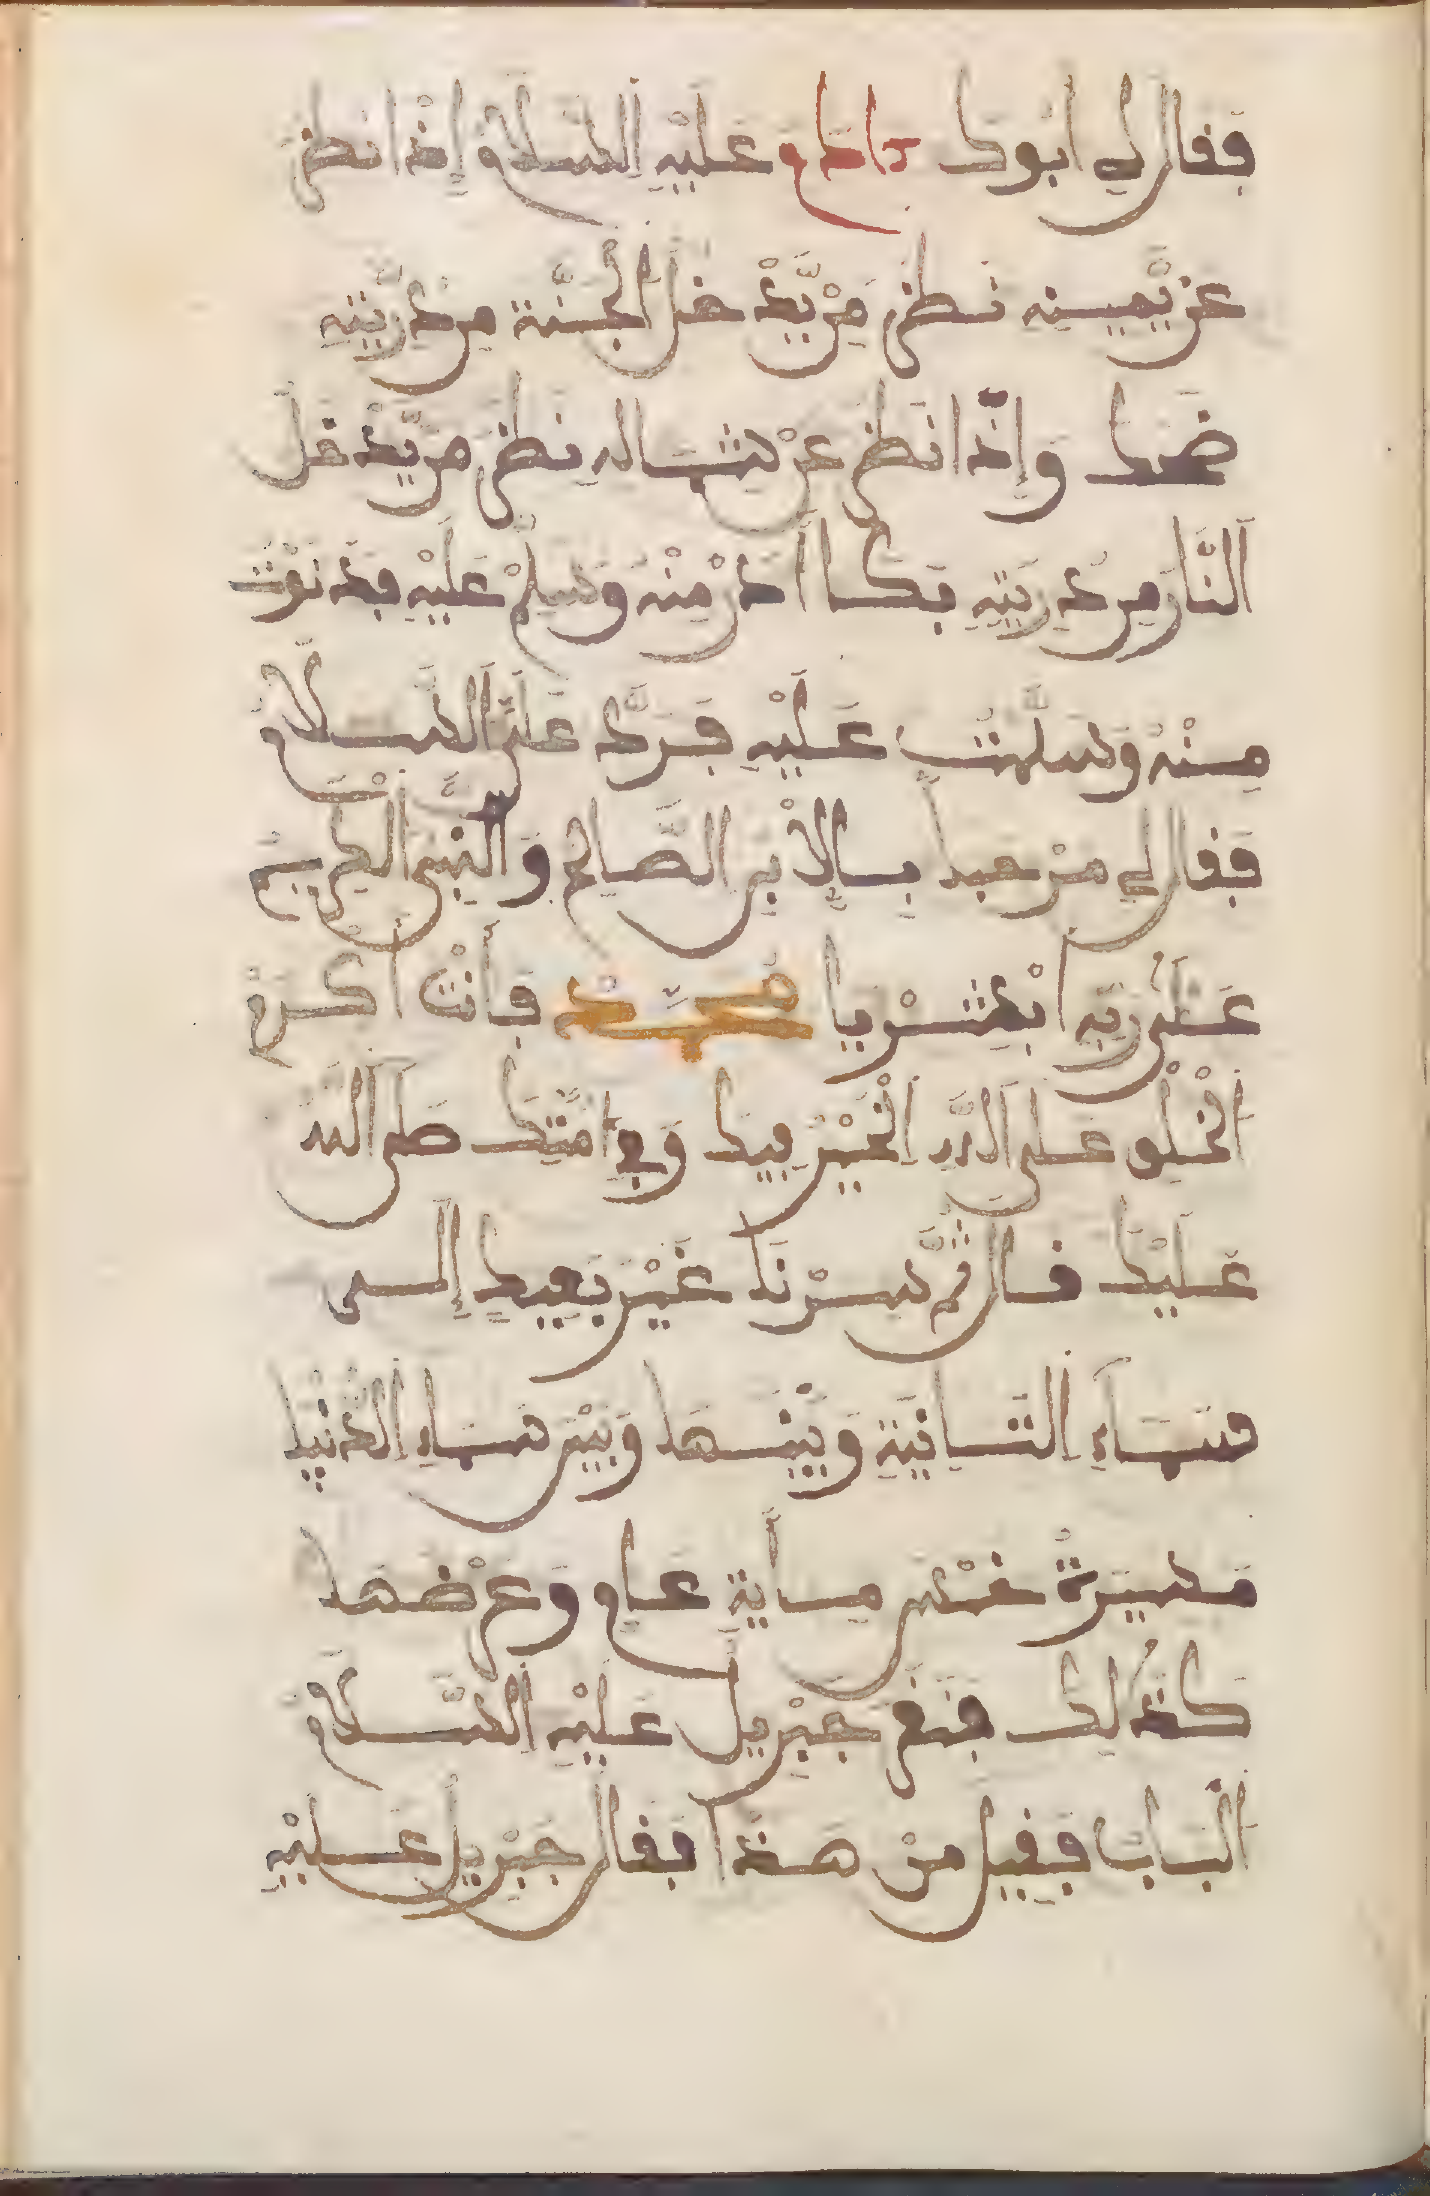 فقال لي أبوك ءادم عليه السلام إذا نظر
عن يمينه نظر من يدخل الجنة من ذريته
ضحك وإذا نظر عن شماله نظر من يدخل
النار من ذريته بكا ادن منه وسلم عليه فدنوت
منه وسلمت عليه فرد علي السلام
فقال لي مرحبا بالابن الصالح والنبي الكريم
على ربه ابشر يا محمد فأنت أكرم
الخلق على الله الخير فيك وفي امتك صلى الله
عليك قال ثم سرنا غير بعيد إلى
سماء الثانية وبينها وبين سماء الدنيا
مسيرة خمس مائة عام وعرضها
كذلك فنفر جبريل عليه السلام
الباب فقيل من هذا فقال جبريل عليه